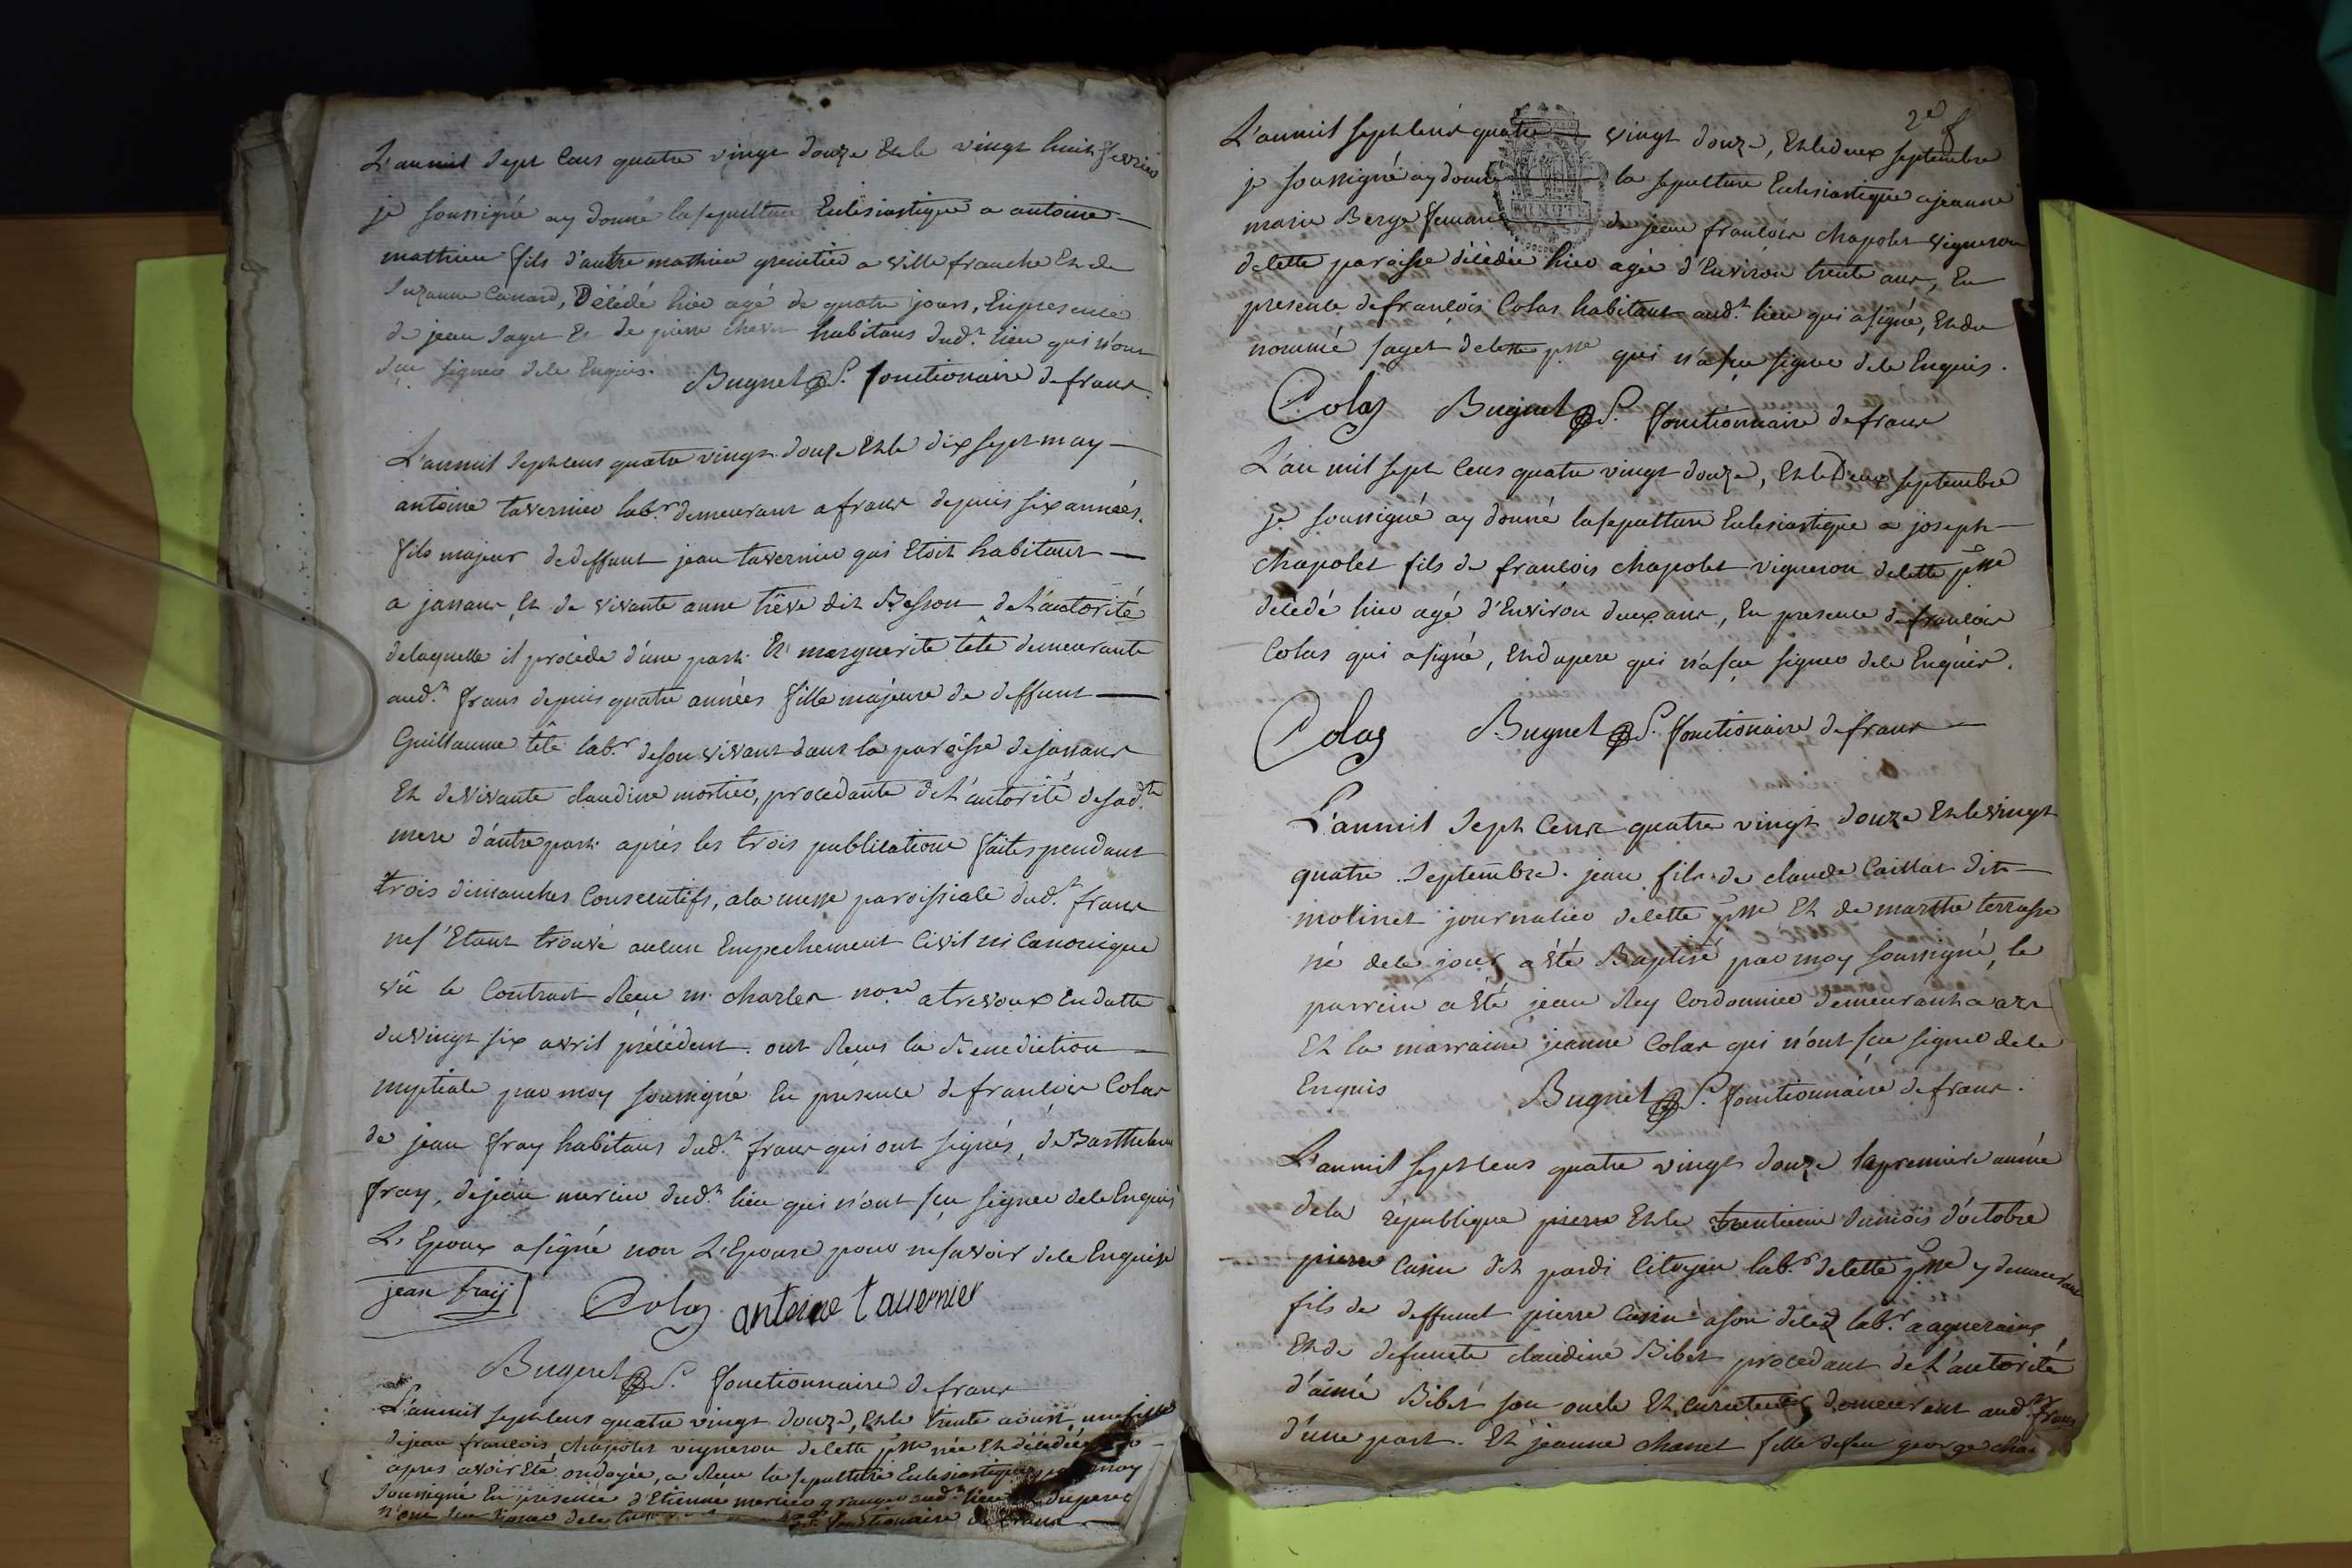 L'an mil sept cens quatre vingt douze et le vingt huit fevrier
je soussigné ay donné la sepulture Eclesiastique a antoine
mathieu fils d'autre mathieu grenetier a ville franche Et de
Suzanne Canard, Décédé hier agé de quatre jours, En presence
de jean Sayet Et de pierre habitans dud.t lieu qui n'ont
sçu signer de ce Enquis. Bugnet P. fonctionaire de frans.
L'an mil sept cens quatre vingt douze Et le dix sept may
antoine tavernier lab.r demeurant a frans depuis six années,
fils majeur de deffunt jean tavernier qui Etoit habitant
a jassans, Et de vivante anne tiève dit Besson de L'autorité
de laquelle il procède d'une part. Et marguerite tête demeurante
aud.t frans depuis quatre années fille majeure de deffunt
Guillaume tête lab.r de son vivant dans la paroisse de jassans
Et de vivante claudine mortier, procedante de L'autorité de sad.te
mere d'autre part. aprés les trois publications faites pendant
trois dimanches Consecutifs, a la messe paroissiale dud.t frans
ne s'Etant trouvé aucun Empechement Civil ni Canonique
vû le Contract Reçu m. charles no.re a trevoux En datte
du vingt six avril précédent. ont Reçus la Benediction
nuptiale par moy soussigné En présence de francois Colas
de jean fray habitans dud.t frans qui ont signés, de Barthelemi
fray, de jean mercier dud.t lieu qui n'ont sçu signer de ce Enquis
L'Epoux a signé non L'Epouse pour ne savoir de ce Enquise
jean fraij Colas antoine tauernier
Bugnet P. fonctionnaire de frans
L'an mil sept cens quatre vingt douze, Et le trente aoust, une fille
de jean francois chapolet vigneron de cette p.sse née Et décédée
apres avoir Eté ondoyée, a Reçu la sepulture Eclesiastique par moy
soussigné En presence d'Etienne mercier granger aud.t lieu Et du pere
n'ont sçu signer de ce P. fonctionaire de frans
2e
L'an mil sept cens quatre vingt douze, Et le deux septembre
je soussigné ay donné la sepulture Eclesiastique a jeanne
MINUTE
marie Berge femme de jean francois chapolet vigneron
de cette paroisse décédée hier agée d'Environ trente ans, En
presence de francois Colas habitant aud.t lieu qui a signé, Et du
nommé sayet de cette p.sse qui n'a sçu signer de ce Enquis.
Colas Bugnet P. fonctionnaire de frans
L'an mil sept cens quatre vingt douze, Et le Deux septembre
je soussigné ay donné la sepulture Eclesiastique a joseph
chapolet fils de francois chapolet vigneron de cette p.sse
décédé hier agé d'Environ deux ans, En presence de francois
Colas qui a signé, Et du pere qui n'a sçu signer de ce Enquis.
Colas Bugnet P. fonctionaire de frans
L'an mil sept Cens quatre vingt douze Et le vingt
quatre Septembre. jean fils de claude Caillat dit
molinet journalier de cette p.sse Et de marthe terrasse
né de ce jour a été Baptisé par moy soussigné, le
parrein a été jean Rey Cordonnier demeurant a ars
Et la marraine jeanne Colas qui n'ont sçu signer de ce
Enquis Bugnet P. fonctionnaire de frans.
L'an mil sept cens quatre vingt douze la premiere année
de la république pierre Et le trentieme du mois d'octobre
pierre Casin dit pardi Citoyen lab.r de cette p.sse y demeurant
fils de deffunt pierre Casin a son déces lab.r a aguerains
Et de defuncte claudine Bibet procedant de L'autorité
d'aimé Bibet son oncle Et curateur demeurant aud.t frans
d'une part. Et jeanne chanet fille de feu george